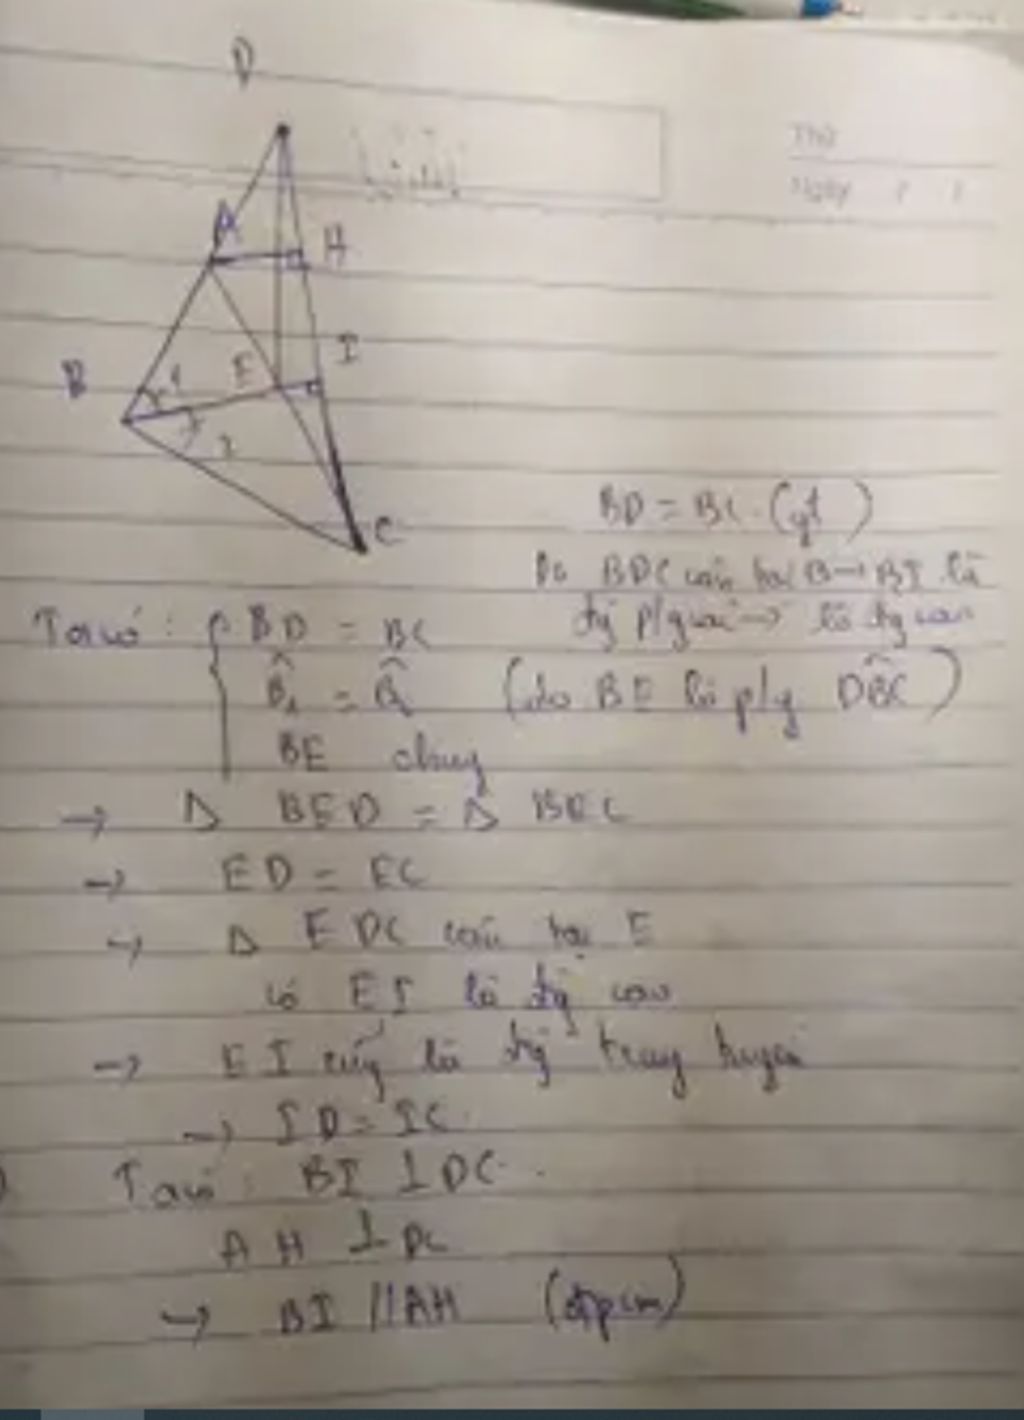 Thứ
Ngày
D
A H
I
B 1 E
2
C
BD = BC (gt)
Do BDC cân tại B → BI là
đg p/giác → là đg cao
Ta có: BD = BC
B̂₁ = B̂₂ (do BE là p/g DB̂C)
BE chung
→ Δ BED = Δ BEC
→ ED = EC
→ Δ EDC cân tại E
có EI là đg cao
→ EI cũng là đg trung tuyến
→ ID = IC
Ta có: BI ⊥ DC.
AH ⊥ DC
→ BI // AH (đpcm)